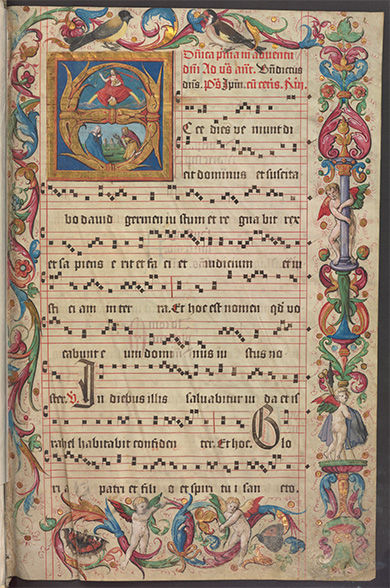 Dnica pma in aduentu
dni Ad vs ant. Bndictus
dns. Ps Ipm. cu
C ce dies ve niunt di
cit dominus et suscita
bo dauid germen iu stum et re gna bit rex
et sa piens e rit et fa ci et iudicium et iu
sti ci am in ter ra. Et hoc est nomen qd vo
cabunt e um domi nus iu stus no
ster. V In diebus illis saluabitur iu da et is
rahel habitabit confiden ter. Et hoc. Glo
ri a patri et fili o et spiri tu i san cto.